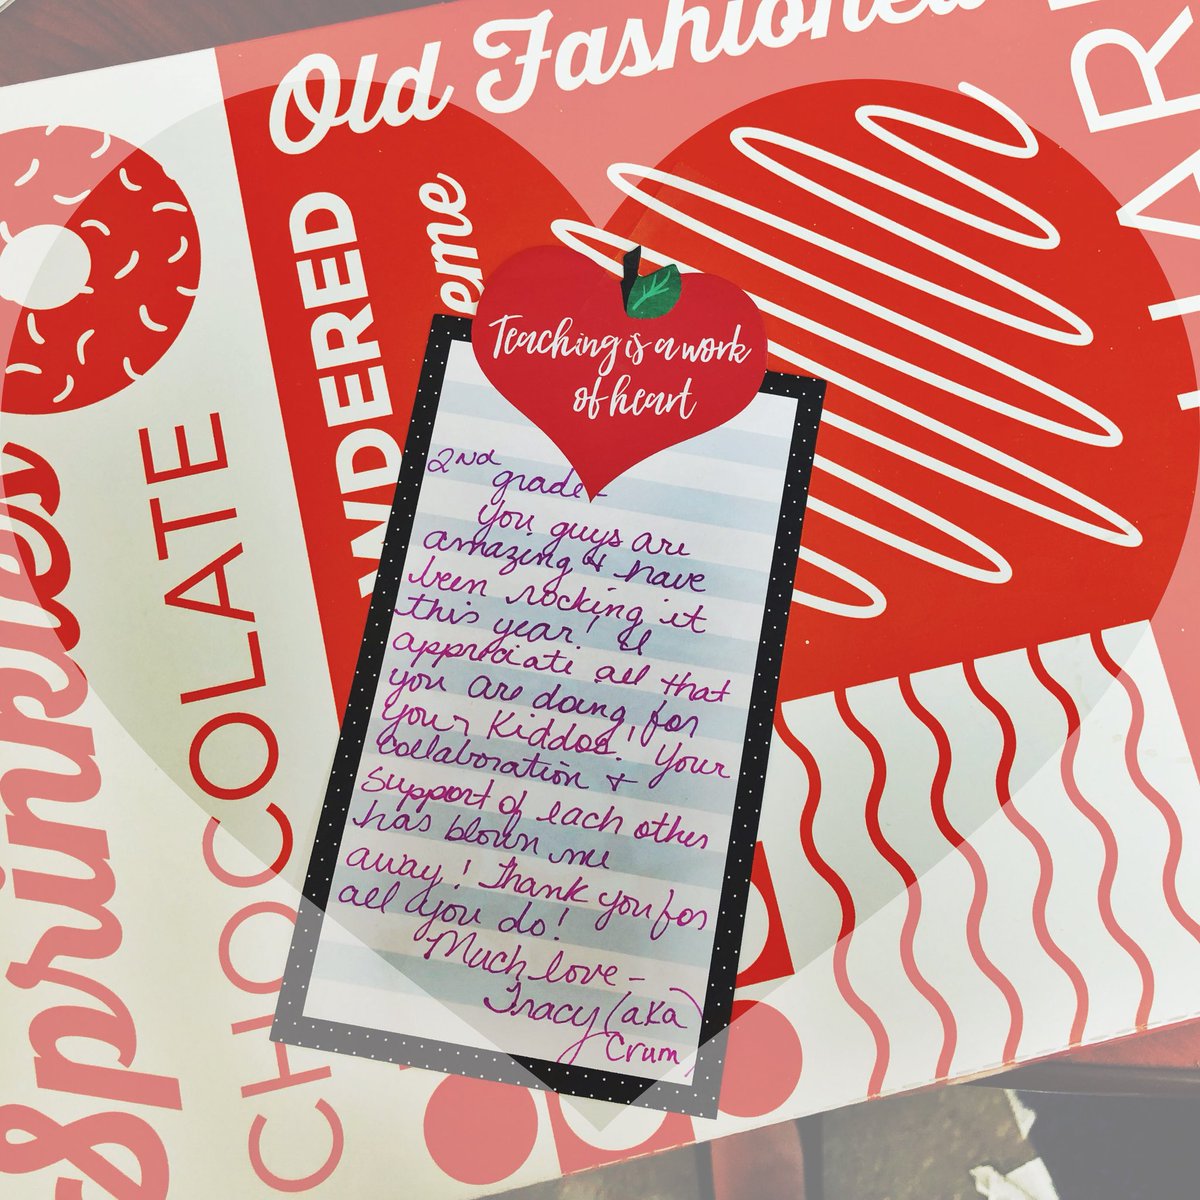 Old Fashioned
WDERED
eme
Sprinkles
CHOCOLATE
Teaching is a work
of heart
2nd
grade-
You guys are
amazing & have
been rocking it
this year! I
appreciate all that
you are doing for
your kiddos. Your
collaboration &
support of each other
has blown me
away! Thank you for
all you do!
Much love -
Tracy (aka
Crum)